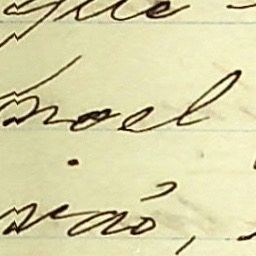 que
noel
não,